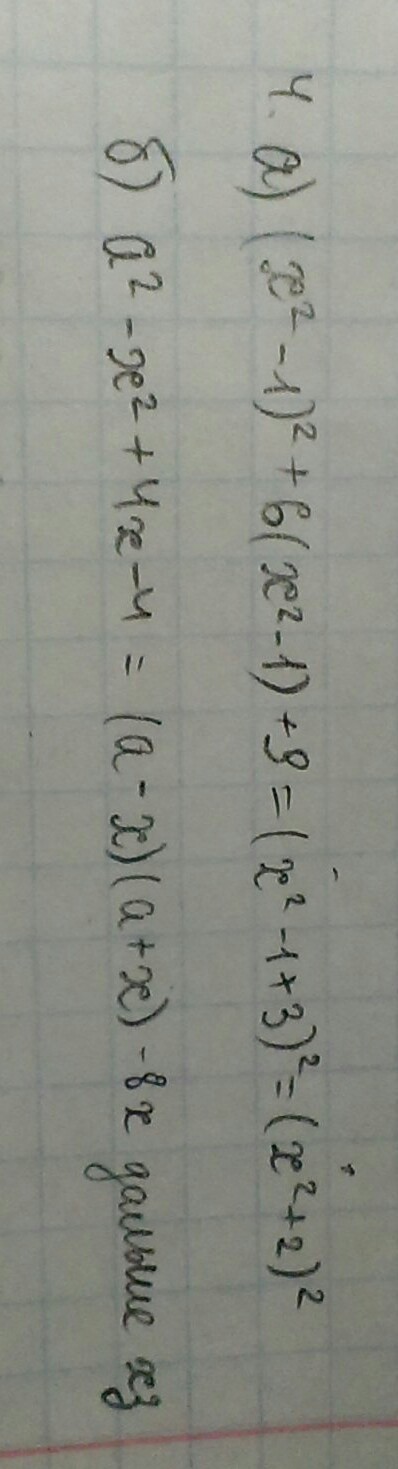 4. а) (x² - 1)² + 6(x² - 1) + 9 = (x² - 1 + 3)² = (x² + 2)²
б) a² - x² + 4x - 4 = (a - x)(a + x) - 8x дальше хз